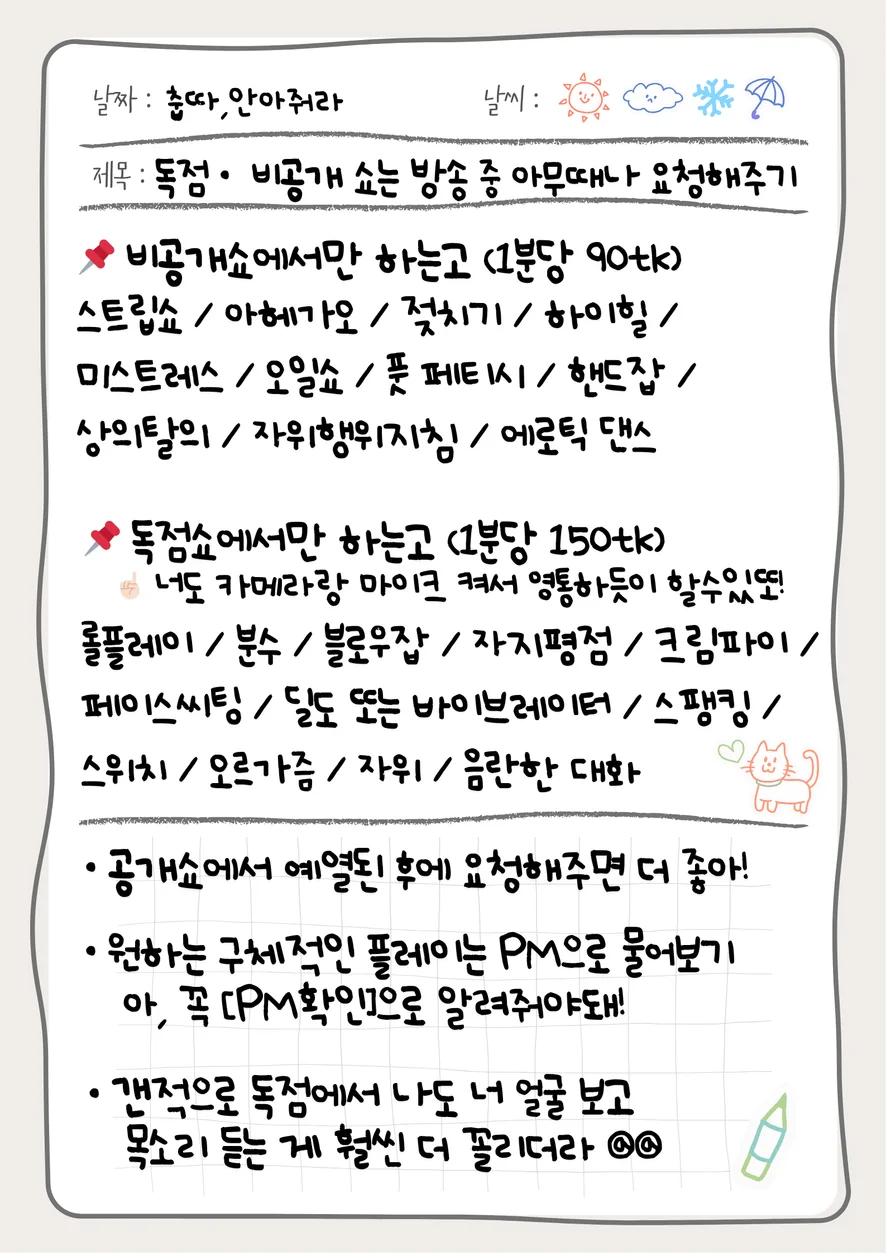 날짜 : 춥따,안아줘라 날씨 :
제목 : 독점· 비공개 쇼는 방송 중 아무때나 요청해주기
비공개쇼에서만 하는고 (1분당 90tk)
스트립쇼 / 아헤가오 / 젖치기 / 하이힐 /
미스트레스 / 오일쇼 / 풋 페티시 / 핸드잡 /
상의탈의 / 자위행위지침 / 에로틱 댄스
독점쇼에서만 하는고 (1분당 150tk)
너도 카메라랑 마이크 켜서 영통하듯이 할수있또!
롤플레이 / 분수 / 블로우잡 / 자지평점 / 크림파이 /
페이스씨팅 / 딜도 또는 바이브레이터 / 스팽킹 /
스위치 / 오르가즘 / 자위 / 음란한 대화
· 공개쇼에서 예열된 후에 요청해주면 더 좋아!
· 원하는 구체적인 플레이는 PM으로 물어보기
아, 꼭 [PM확인]으로 알려줘야돼!
· 갠적으로 독점에서 나도 너 얼굴 보고
목소리 듣는 게 훨씬 더 꼴리더라 @@